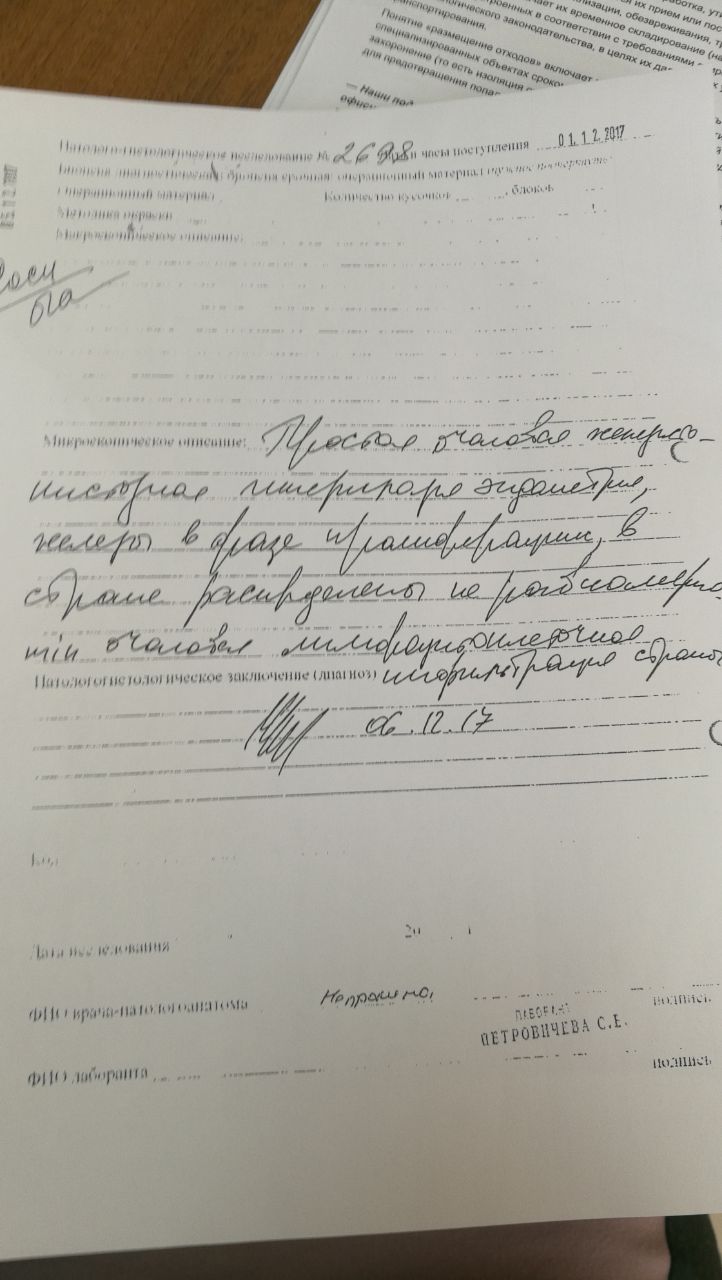 их прием или
ает их временное складирование
троенных в соответствии с требованиями
логического законодательства, в целях их
ранспортирования.
Понятие «размещение отходов» включает
специализированных объектах сроком
захоронение (то есть изоляция
для предотвращения
— Наши
Патологогистологическое исследование № 2698 и часы поступления 01.12.2017
Биопсия диагностическая, биопсия срочная; операционный материал (нужное подчеркнуть)
Операционный материал Количество кусочков блоков
Методика окраски
Макроскопическое описание:
Микроскопическое описание: Простая очаговая железисто-
кистозная гиперплазия эндометрия,
железы в фазе пролиферации, в
строме распределены не равномерно
min очаговая лимфоплазмоклеточная
Патологогистологическое заключение (диагноз) инфильтрация стромы
06.12.17
Код
Дата исследования 20
ФИО врача-патологоанатома подпись
ЛАБОРАНТ
ПЕТРОВИЧЕВА С.Е.
ФИО лаборанта подпись